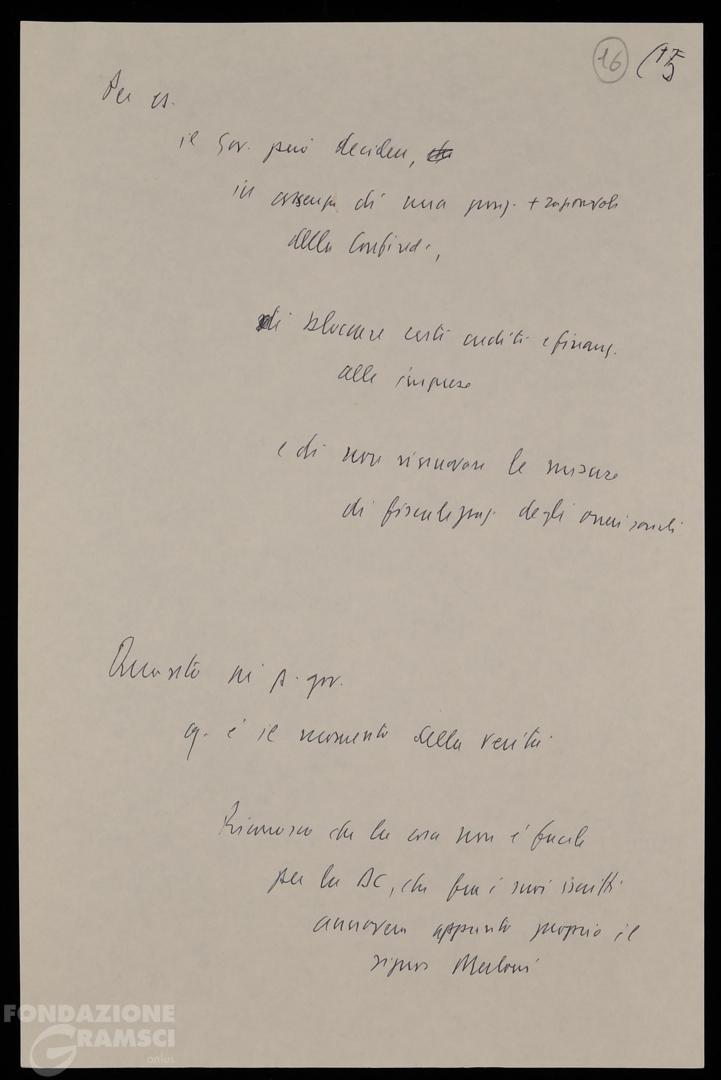 16 15
Per es.
il Gov. può decidere,
in assenza di una pos. + ragionevole
della Confind.,
di bloccare certi crediti e finanz.
alle imprese
e di non rinnovare le misure
di fiscalizzaz. degli oneri sociali
Quanto ai p. gov.
q. è il momento della verità
Riconosco che la cosa non è facile
per la DC, che fra i suoi iscritti
annovera appunto proprio il
signor Merloni
FONDAZIONE
GRAMSCI
onlus